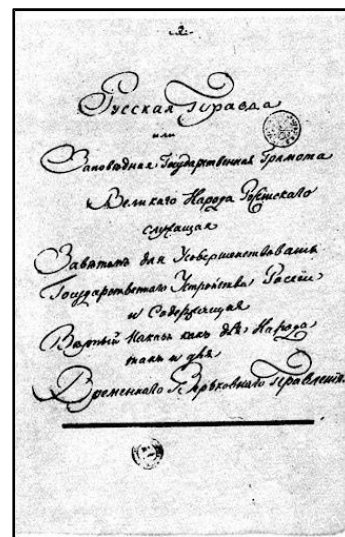 2.
Русская Правда
или
Заповедная Государственная Грамота
Великаго Народа Россійскаго
служащая
Заветомъ для Усовершенствованія
Государственнаго Устройства Россіи
и Содержащая
Верный Наказъ какъ для Народа
такъ и для
Временнаго Верьховнаго Правленія